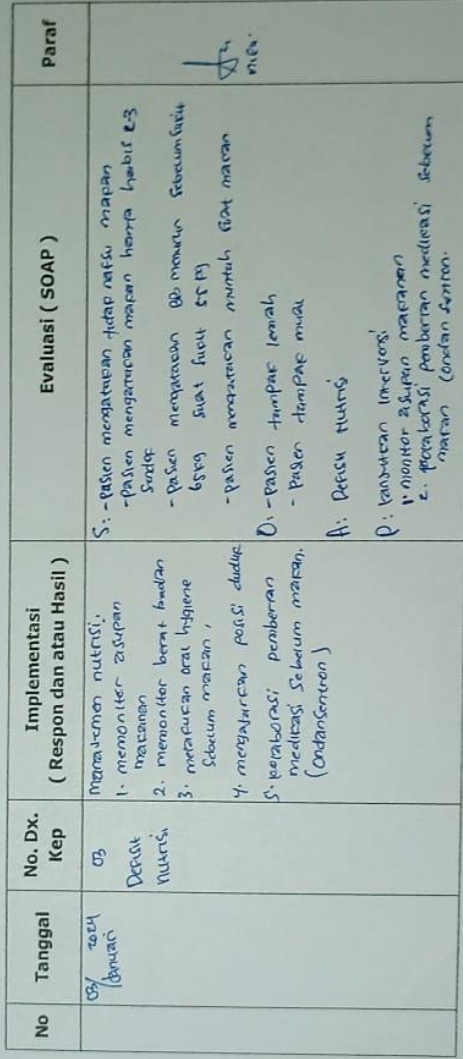 No
Tanggal
No. Dx.
Kep
Implementasi
( Respon dan atau Hasil )
Evaluasi ( SOAP )
Paraf
03/ 2024
Januari
03
Defisit
nutrisi
manajemen nutrisi.
1. memonitor asupan
makanan
2. memonitor berat badan
3. melakukan oral hygiene
sebelum makan,
4. mengajarkan posisi duduk
5. kolaborasi pemberian
medikasi sebelum makan.
(ondansentron)
S: - Pasien mengatakan tidak nafsu makan
- Pasien mengatakan makan hanya habis 2-3
sendok
- Pasien mengatakan BB menurun sebelum sakit
65kg saat sakit 55 kg
- Pasien mengatakan muntah saat makan
O: - Pasien tampak lemah
- Pasien tampak mual
A: Defisit Nutrisi
P: Lanjutkan Intervensi
1. monitor asupan makanan
2. kolaborasi pemberian medikasi sebelum
makan (ondan sentron.